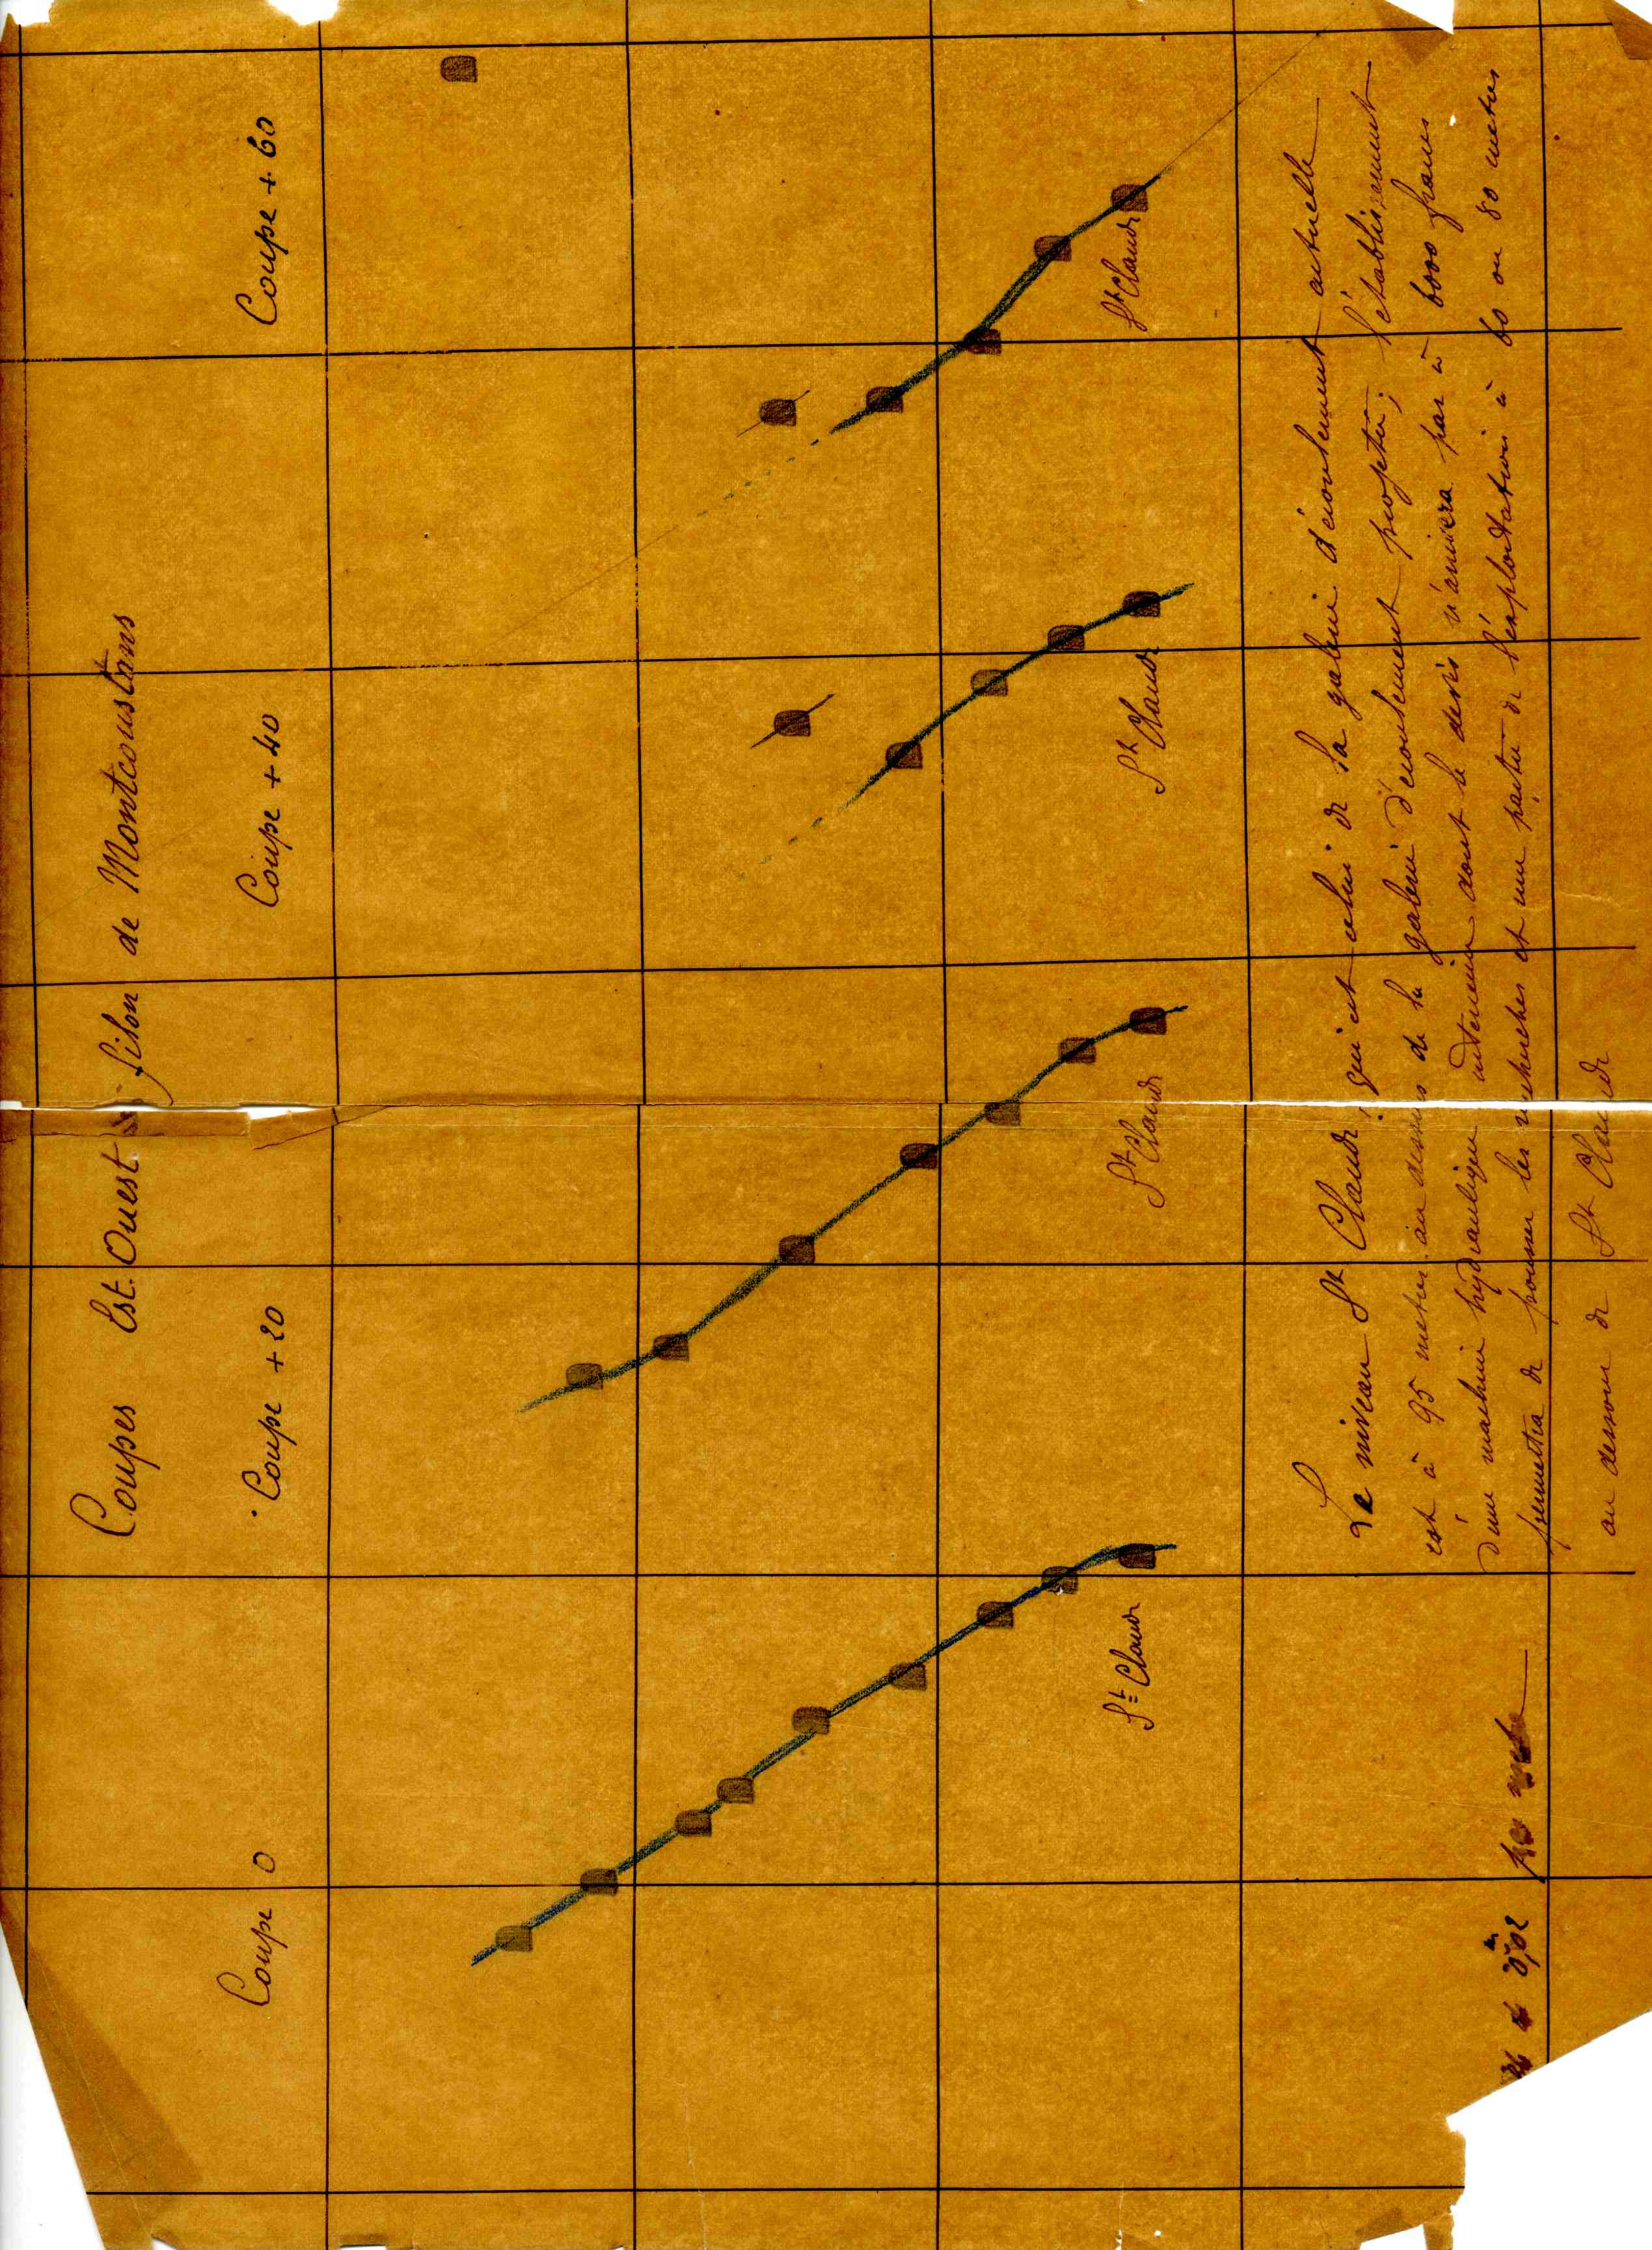 Coupes Est. Ouest filon de Montcoustans
Coupe 0
Coupe + 20
Coupe + 40
Coupe + 60
St Claude
St Claude
St Claude
St Claude
Le niveau St Claude qui est celui de la galerie d'écoulement actuelle
est à 95 metres au dessus de la galerie d'écoulement projetée; l'établissement
d'une machine hydraulique interieure dont le devis n'arrivera pas à 6000 francs
permettra de pousser les recherches et une partie de l'exploitation à 60 ou 80 metres
au dessous de St Claude
0,02 m par metre